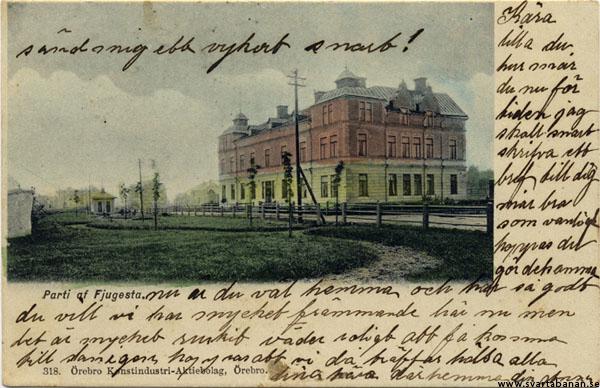 sänd mig ett vykort snart!
Kära
lilla du,
hur mår
du nu för
tiden jag
skall snart
skrifva ett
bref till dig
mår bra
som vanligt
hoppas du
gör det samma
Parti af Fjugesta.
nu är du väl hemma och har så godt
du vill vi har mycket främmande här nu men
det är mycket ruskit väder roligt att få komma
till hoppas att vi då träffas hälsa alla
318. Örebro Konstindustri-Aktiebolag, Örebro.
kära där hemma
www.svartabanan.se